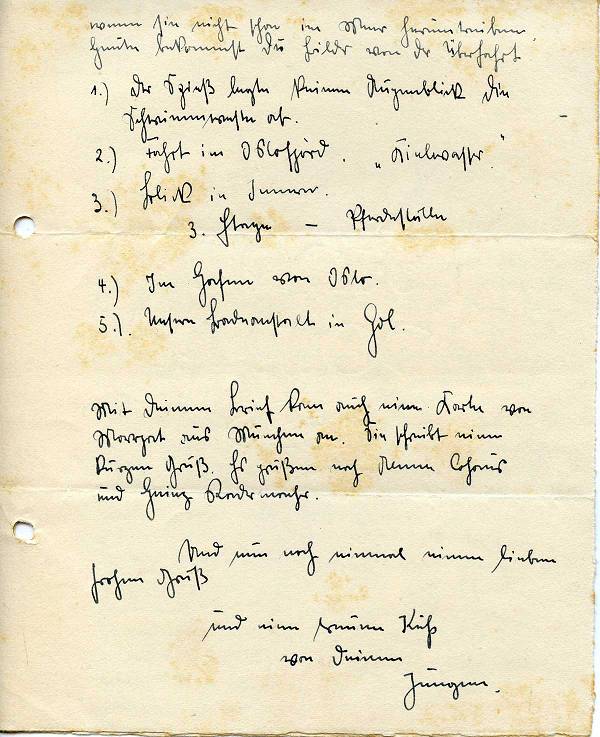 wenn sie nicht schon im Meer herumtreiben.
Heute bekommst Du Bilder von der Überfahrt
1.) Der Spieß legte keinen Augenblick die
Schwimmweste ab.
2.) Fahrt im Oslofjord. „Kielwasser"
3.) Blick in Innere.
3. Etage – Pferdeställe
4.) Im Hafen von Oslo.
5.) Unsere Badeanstalt in Gol.
Mit Deinem Brief kam auch eine Karte von
Margret aus München an. Sie schreibt einen
kurzen Gruß. Es grüßen noch
und Heinz
Und nun noch einmal einen lieben
frohen Gruß
und einen Kuß
von Deinem
Jungen.